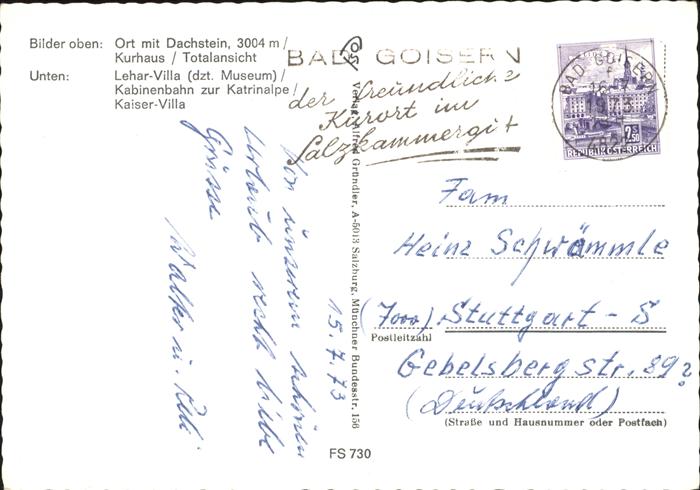 Bilder oben: Ort mit Dachstein, 3004 m /
Kurhaus / Totalansicht
Unten: Lehar-Villa (dzt. Museum) /
Kabinenbahn zur Katrinalpe /
Kaiser-Villa
BAD GOISERN
der freundliche
Kurort im
Salzkammergut
BAD GOISERN
1973
2.50
REPUBLIK ÖSTERREICH
Verlag Alfred Gründler, A-5013 Salzburg, Münchner Bundesstr. 156
15.7.73
Von unserem schönen
Urlaub recht liebe
Grüsse
Walter u.
Fam
Heinz Schwämmle
(7000) Stuttgart - S
Postleitzahl
Gebelsberg str. 89
(Deutschland)
(Straße und Hausnummer oder Postfach)
FS 730